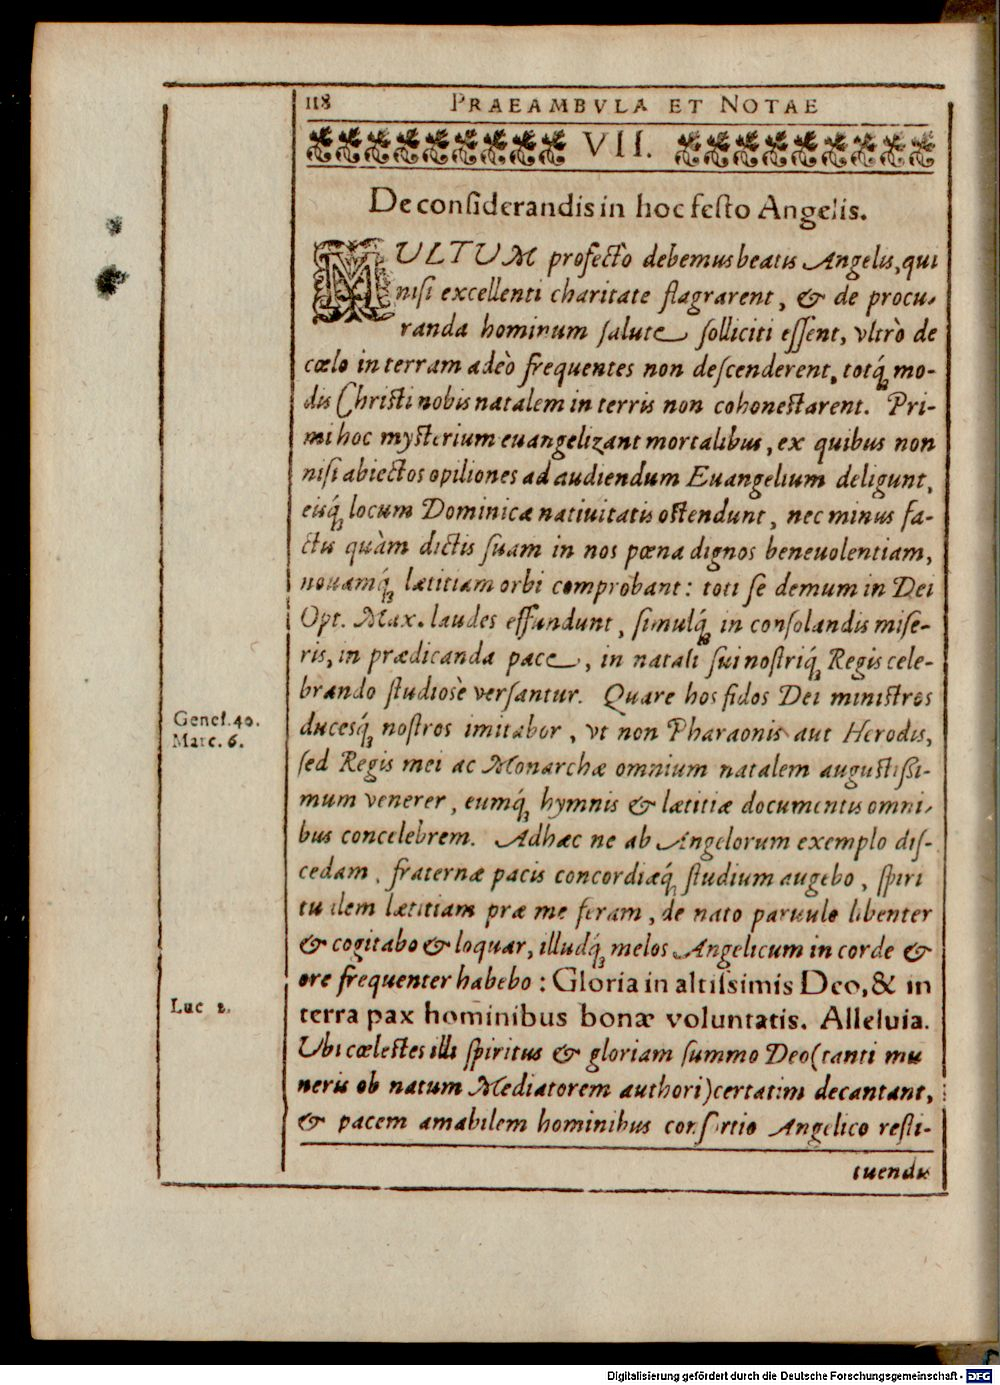 118 PRAEAMBVLA ET NOTAE
VII.
De consideran­dis in hoc festo Angelis.
MULTUM profectò debemus beatis Angelis, qui
nisi excellenti charitate flagrarent, & de procu-
randa hominum salute solliciti essent, vltrò de
cœlo in terram adeò frequentes non descenderent, totq́; mo-
dis Christi nobis natalem in terris non cohonestarent. Pri-
mi hoc mysterium euangelizant mortalibus, ex quibus non
nisi abiectos opiliones ad audiendum Euangelium deligunt,
eisq́; locum Dominicæ natiuitatis ostendunt, nec minus fa-
ctis quàm dictis suam in nos pœna dignos beneuolentiam,
nouamq́; lætitiam orbi comprobant: toti se demum in Dei
Opt. Max. laudes effundunt, simulq́; in consolandis mise-
ris, in prædicanda pace, in natali sui nostriq́; Regis cele-
brando studiosè versantur. Quare hos fidos Dei ministros
Genes. 40.
ducesq́; nostros imitabor, vt non Pharaonis aut Herodis,
Marc. 6.
sed Regis mei ac Monarchæ omnium natalem augustissi-
mum venerer, eumq́; hymnis & lætitiæ documentis omni-
bus concelebrem. Adhæc ne ab Angelorum exemplo dis-
cedam, fraternæ pacis concordiæq́; studium augebo, spiri
tualem lætitiam præ me feram, de nato paruulo libenter
& cogitabo & loquar, illudq́; melos Angelicum in corde &
ore frequenter habebo: Gloria in altissimis Deo, & in
Luc 2.
terra pax hominibus bonæ voluntatis. Alleluia.
Ubi cœlestes illi spiritus & gloriam summo Deo (tanti mu
neris ob natum Mediatorem authori) certatim decantant,
& pacem amabilem hominibus consortio Angelico resti-
tuendis
Digitalisierung gefördert durch die Deutsche Forschungsgemeinschaft - DFG